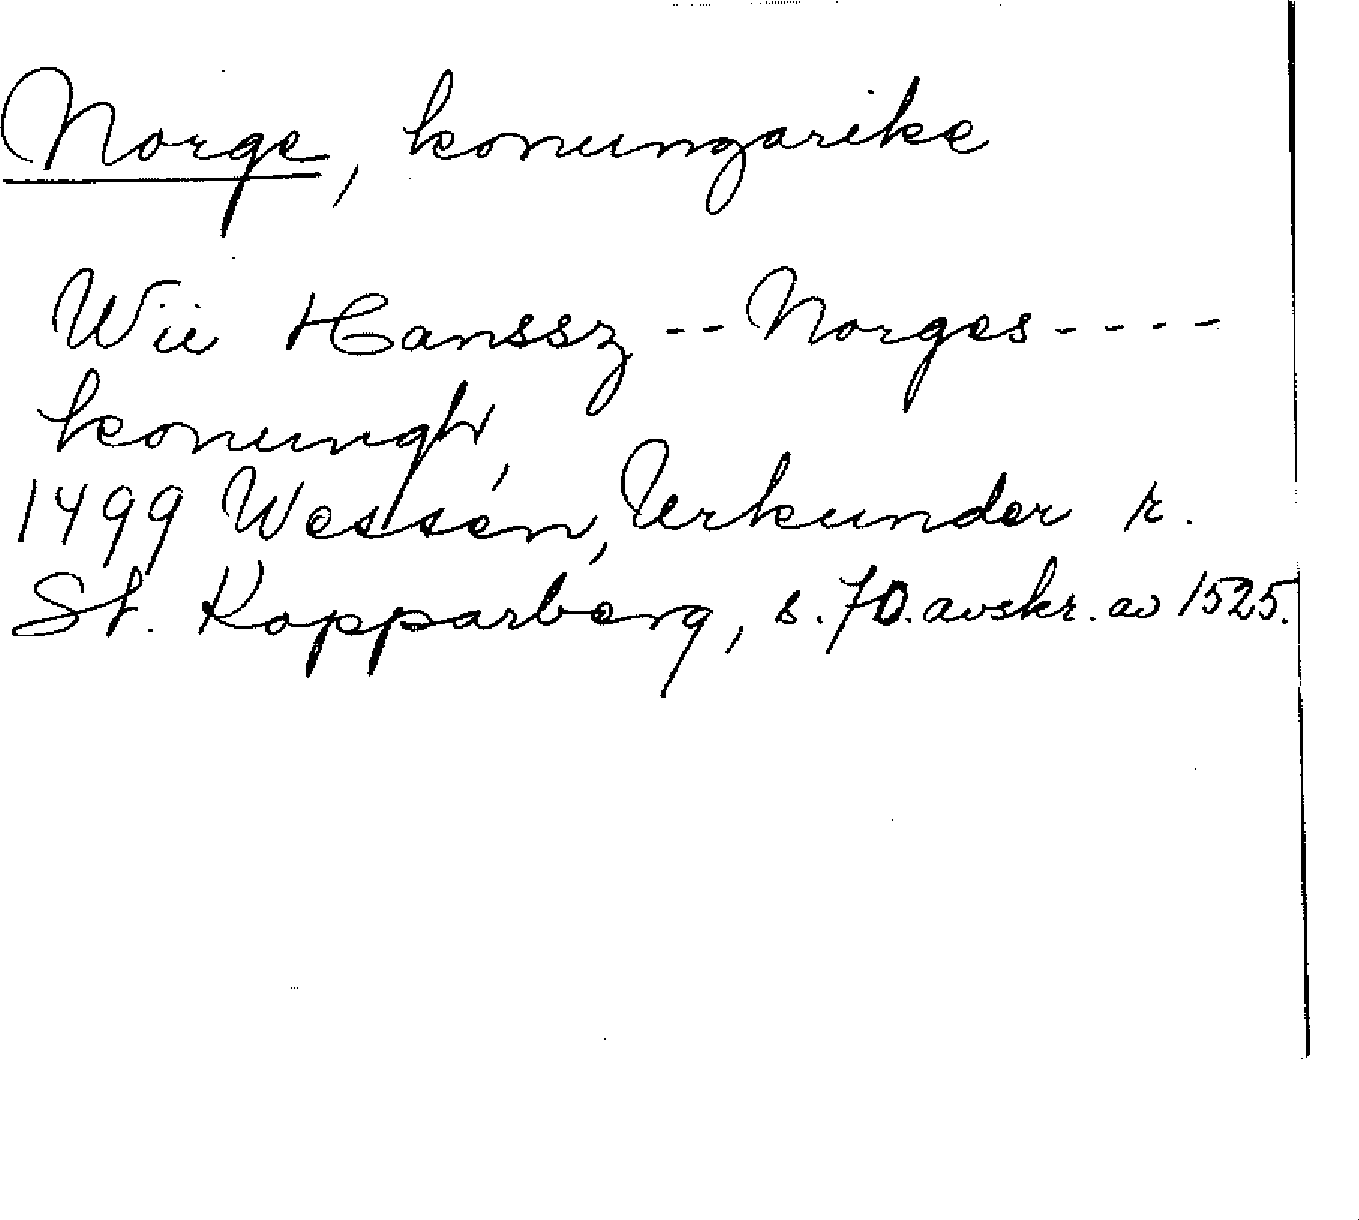 Norge, konungarike
Wii Hanssz -- Norges ----
konungh,
1499 Wessén, Urkunder r.
St. Kopparberg, s. 70. avskr. av 1525.